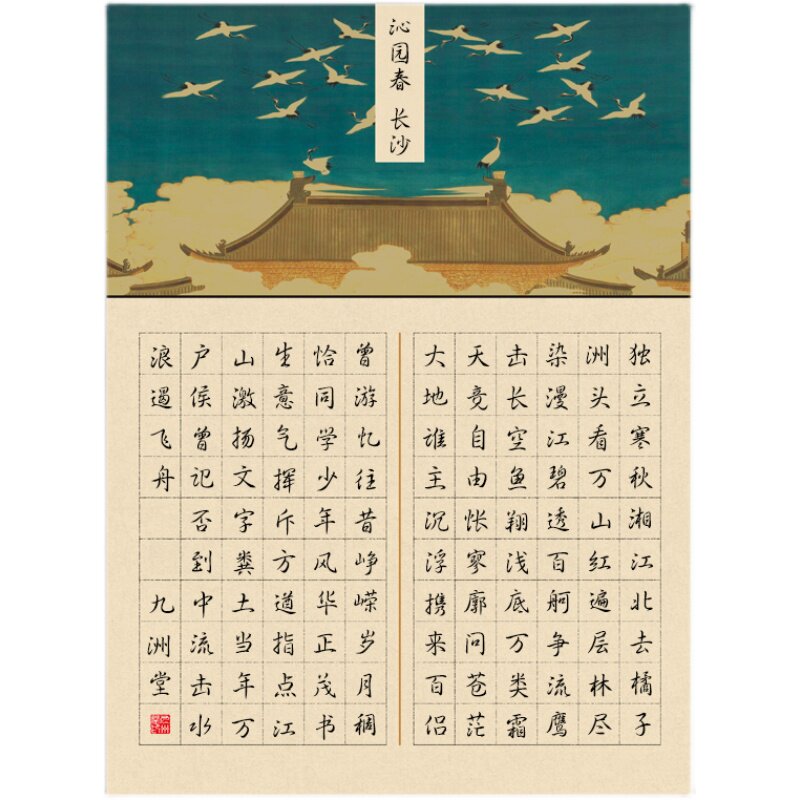 沁园春 长沙
独立寒秋湘江北去橘子
洲头看万山红遍层林尽
染漫江碧透百舸争流鹰
击长空鱼翔浅底万类霜
天竞自由怅寥廓问苍茫
大地谁主沉浮携来百侣
曾游忆往昔峥嵘岁月稠
恰同学少年风华正茂书
生意气挥斥方遒指点江
山激扬文字粪土当年万
户侯曾记否到中流击水
浪遏飞舟
九洲堂